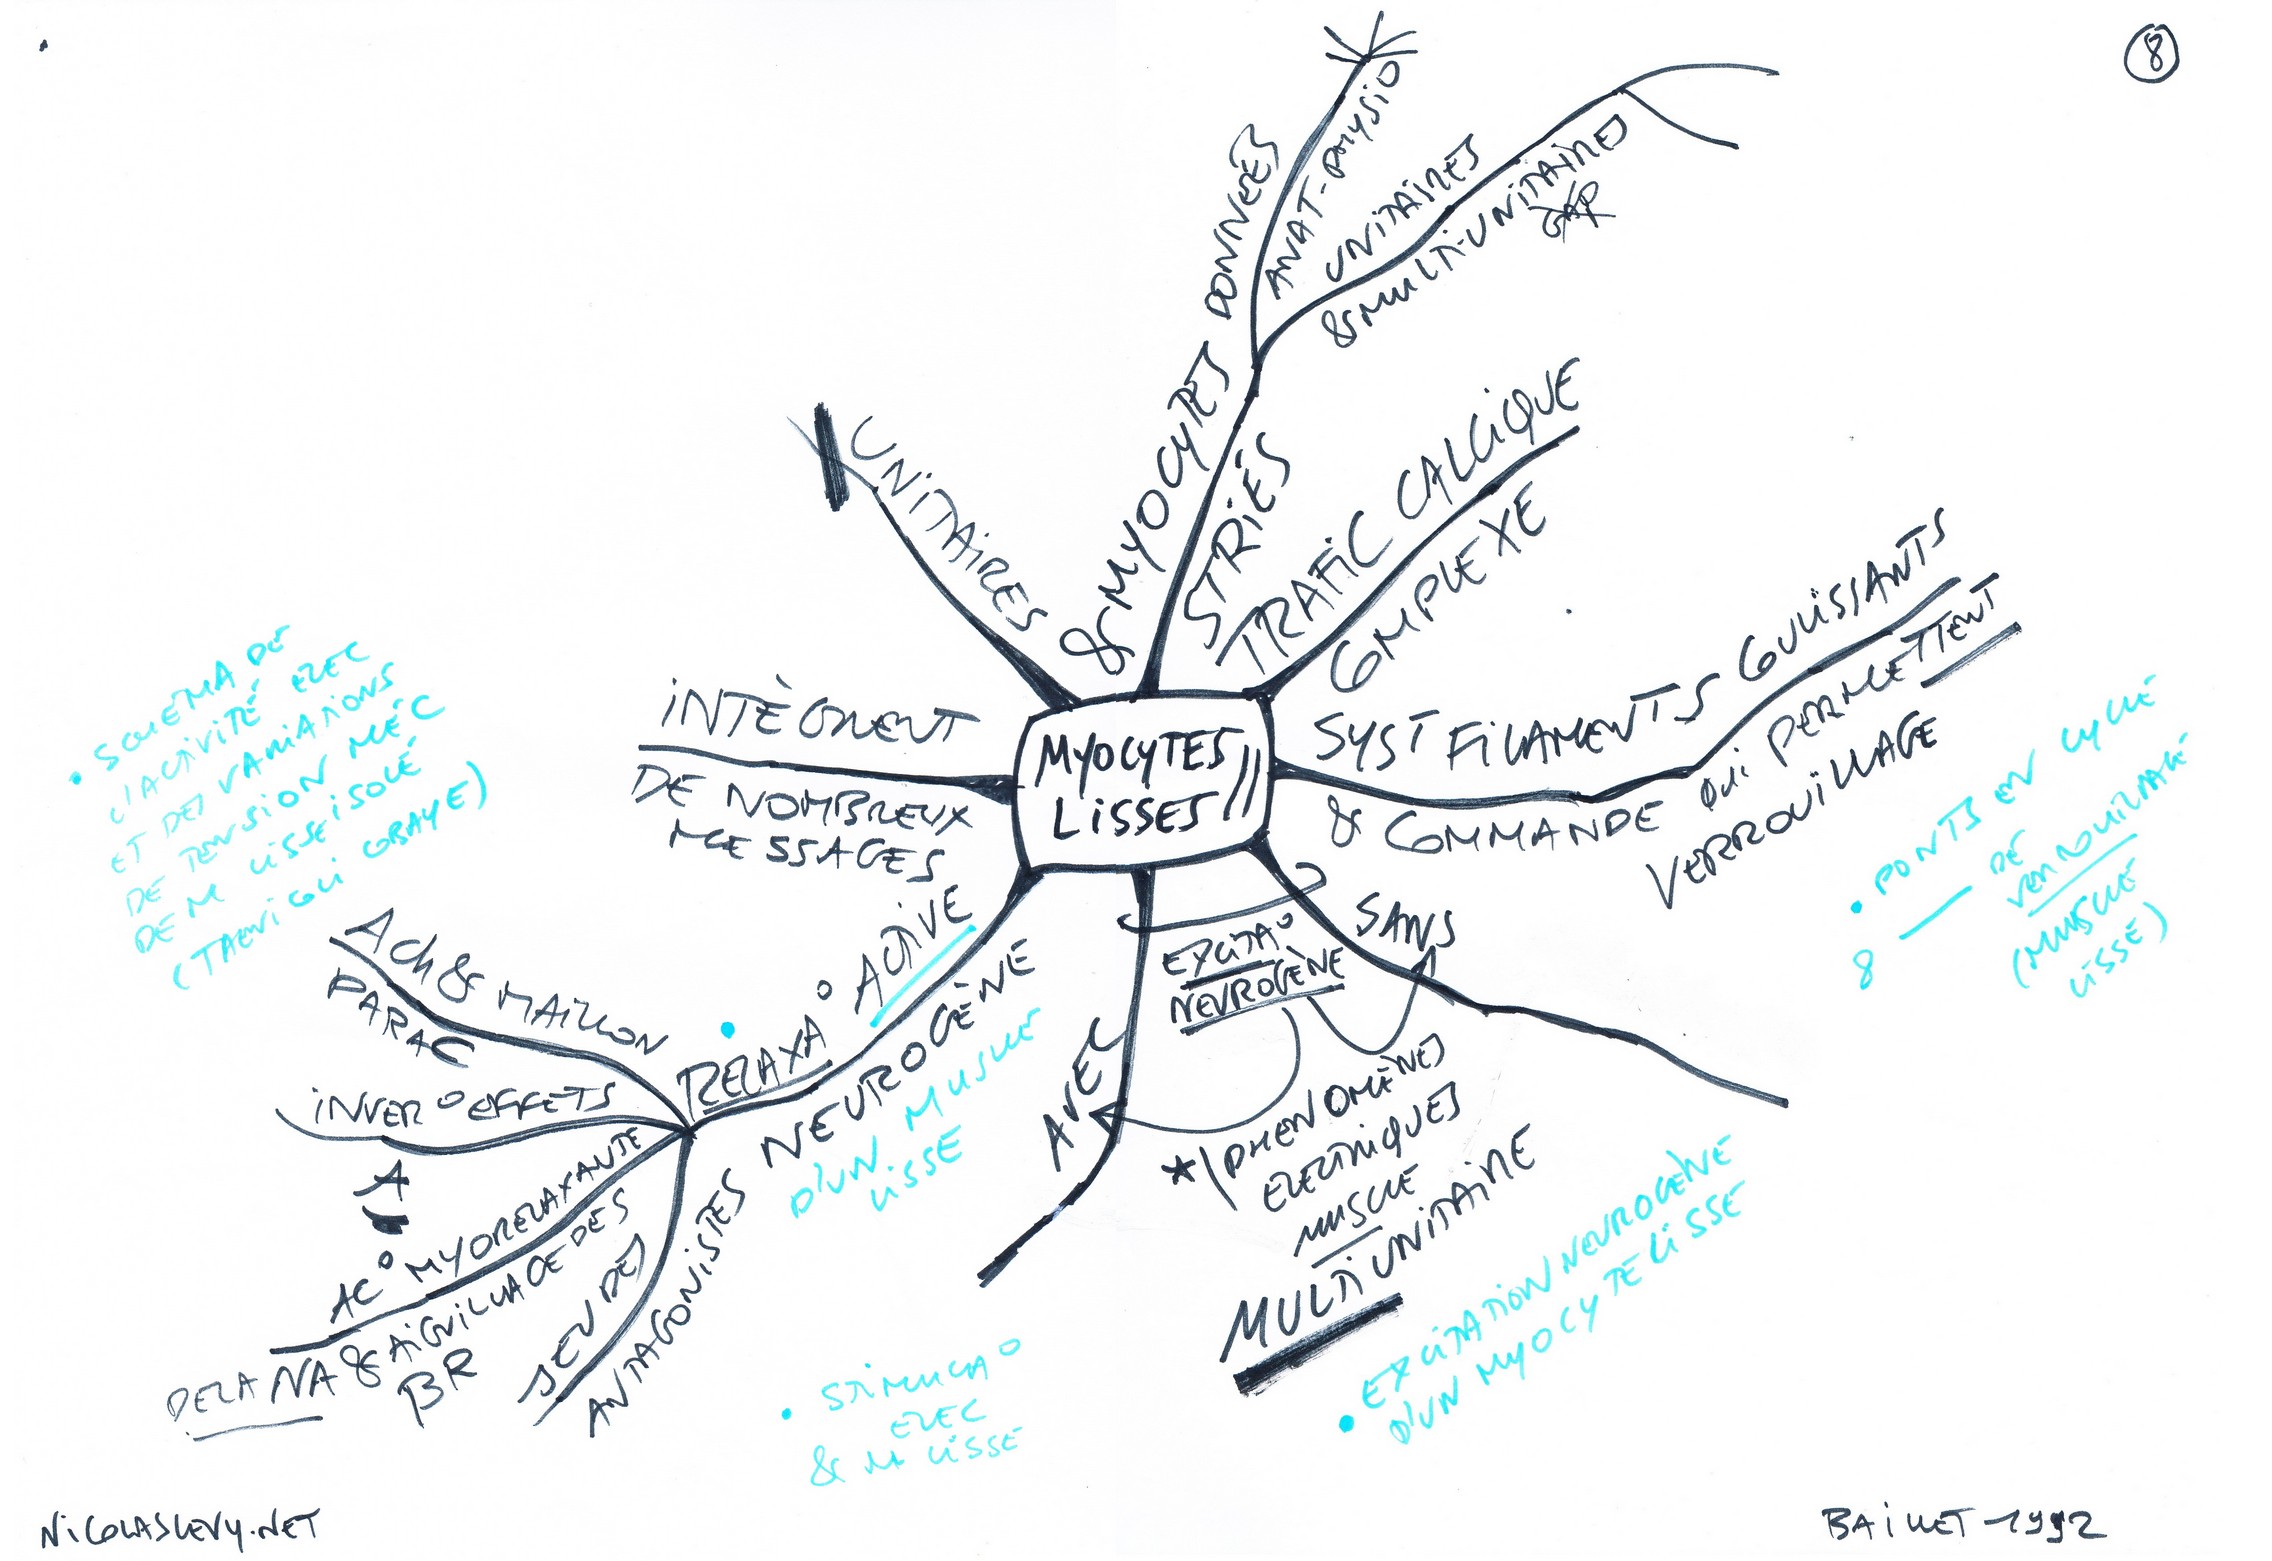 8
DONNÉES
ANAT-PHYSIO
UNITAIRES
& MULTI-UNITAIRES
GAP
& MYOCYTES
STRIÉS
UNITAIRES
TRAFIC CALCIQUE
COMPLEXE
SYST FILAMENTS COULISSANTS
& COMMANDE QUI PERMETTENT
VERROUILLAGE
INTÈGRENT
DE NOMBREUX
MESSAGES
MYOCYTES
LISSES
• SCHÉMA DE
L'ACTIVITÉ ELEC
ET DES VARIATIONS
DE TENSION MÉC
DE M LISSE ISOLÉ
(TAENIA COLI COBAYE)
• PONTS EN CYCLE
& — DE
VERROUILLAGE
(MUSCLE
LISSE)
SANS
EXCITA°
NEUROGÈNE
AVEC
* PHENOMÈNES
ELECTRIQUES
MUSCLE
MULTI UNITAIRE
• EXCITATION NEUROGÈNE
D'UN MYOCYTE LISSE
RELAXA° ACTIVE
NEUROGÈNE
D'UN MUSCLE
LISSE
ACh & MAILLON
PARAC
INVER° EFFETS
A
AC° MYORELAXANTE
DE LA NA & AIGUILLAGE DES
BR
JEU DES
ANTAGONISTES
• STIMULA°
ELEC
& M LISSE
NICOLASLEVY.NET
BAILLET-1992